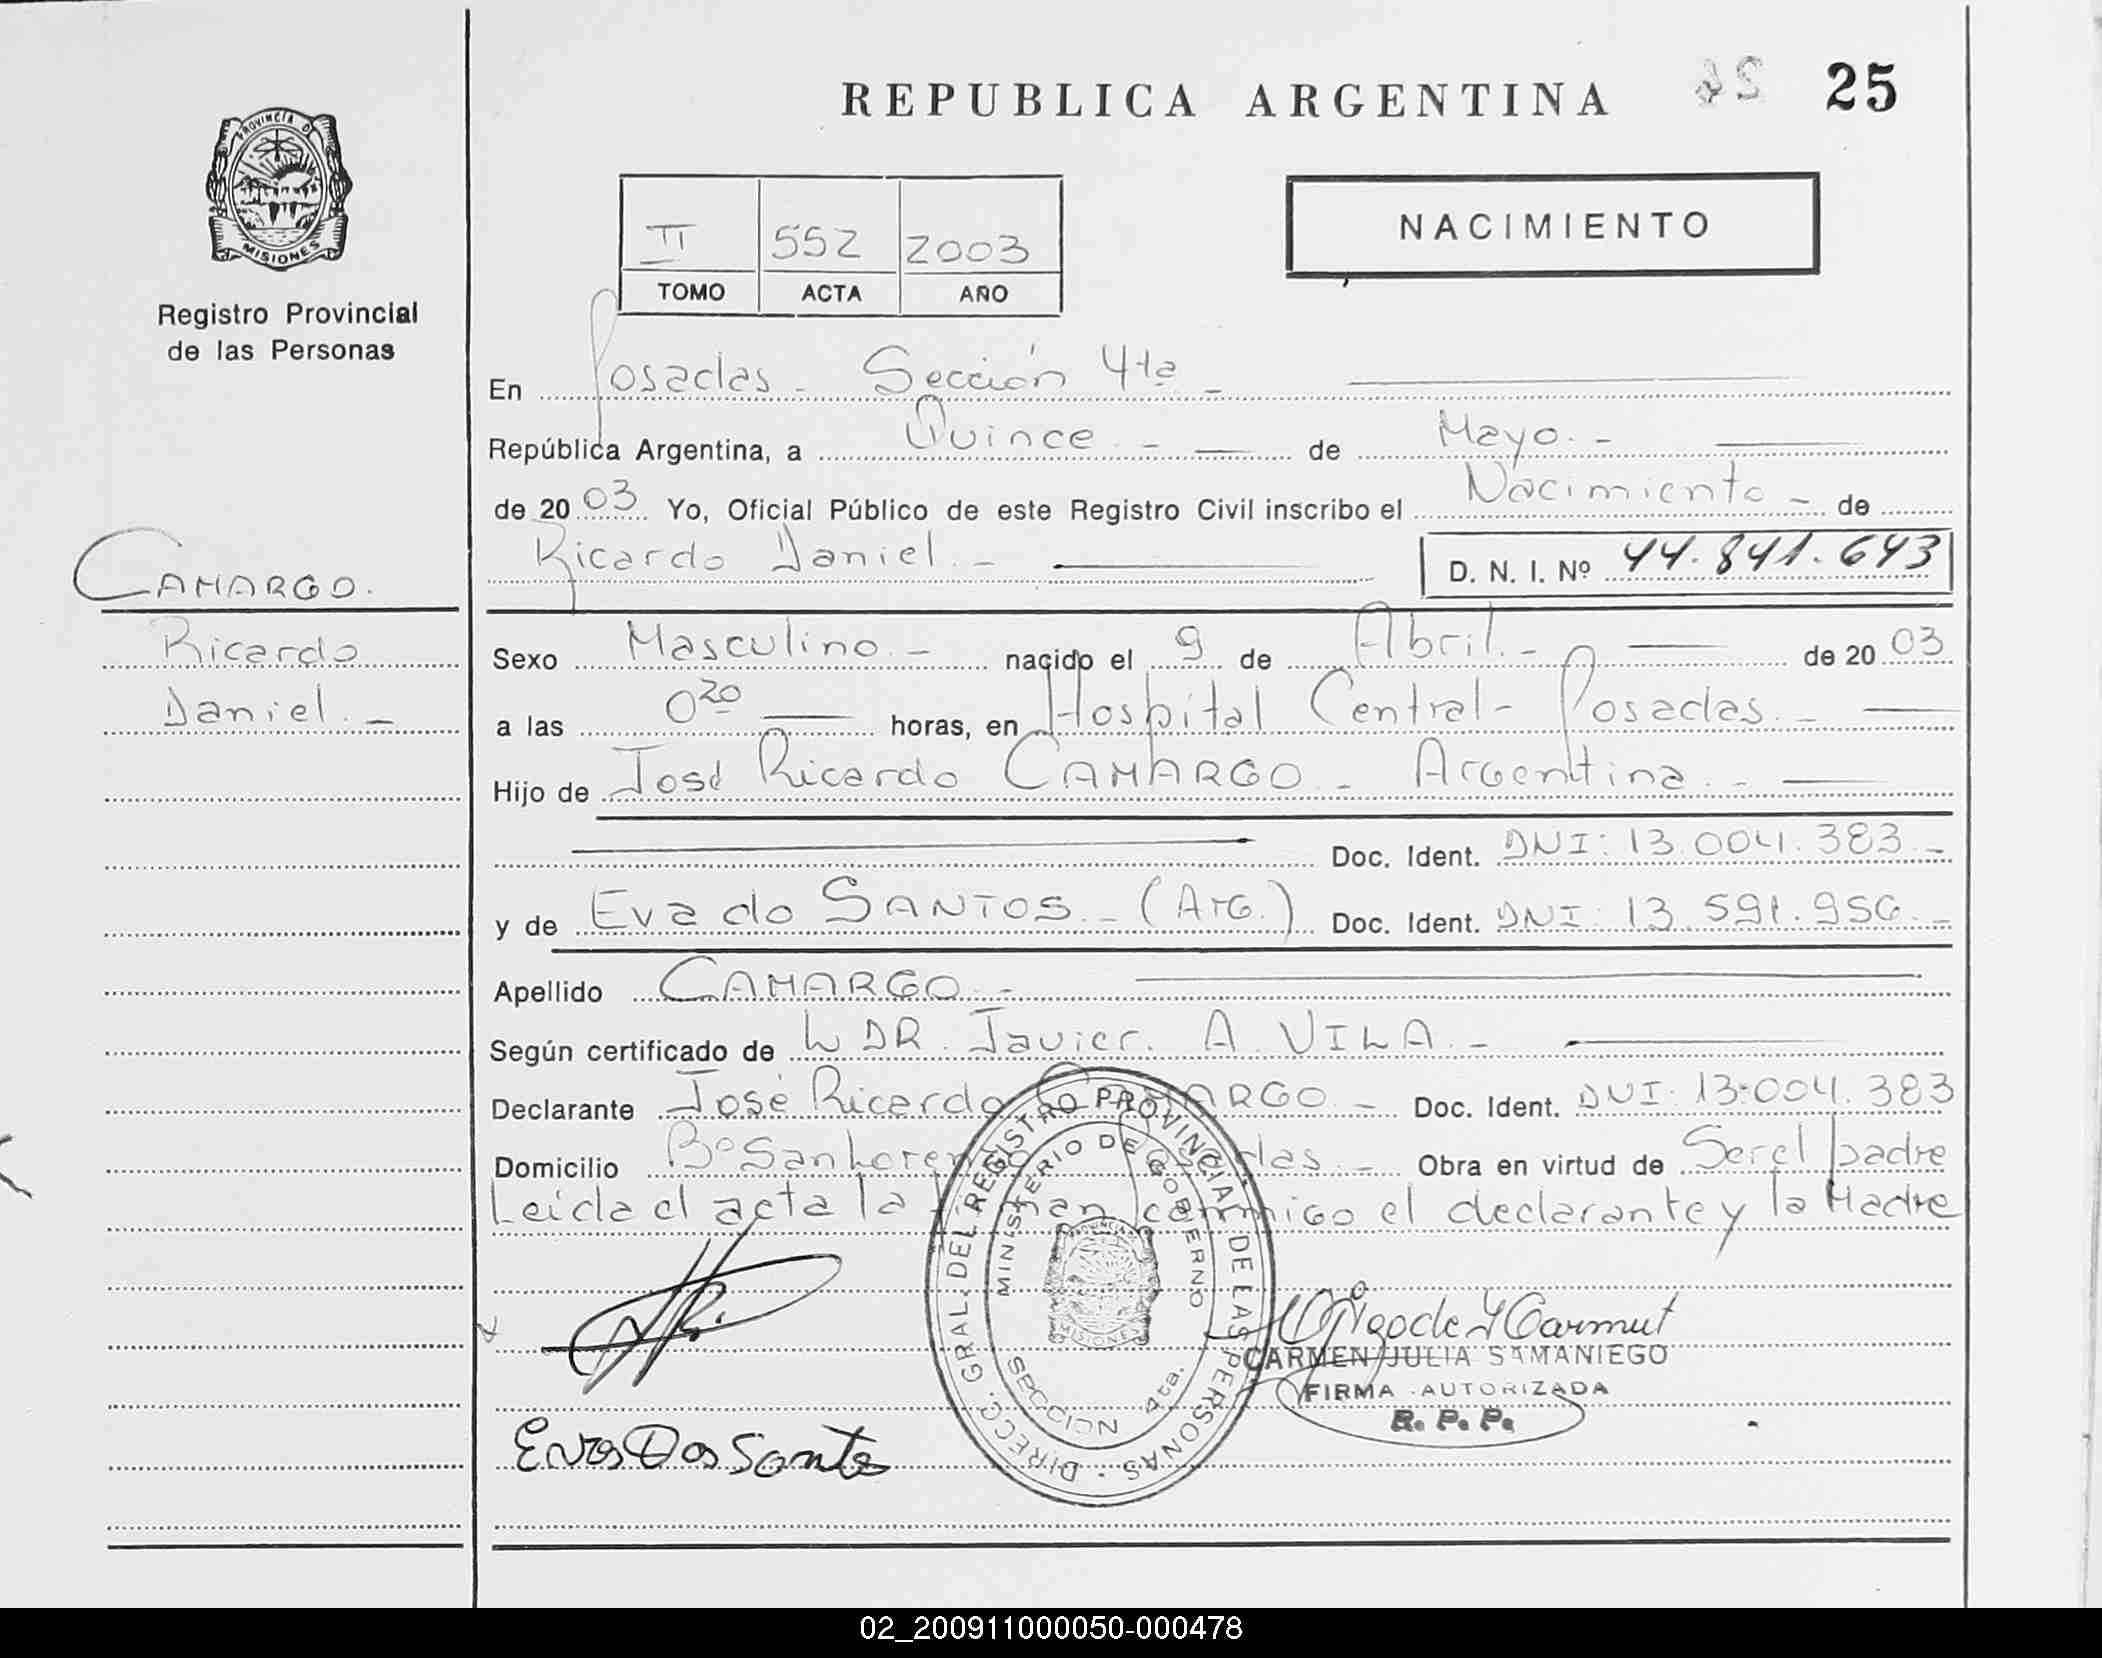 REPUBLICA ARGENTINA 25
PROVINCIA D
MISIONES
Registro Provincial
de las Personas
II 552 2003
TOMO ACTA AÑO
NACIMIENTO
En Posadas - Sección 4ta -
República Argentina, a Quince - de Mayo. -
de 2003 Yo, Oficial Público de este Registro Civil inscribo el Nacimiento - de
Ricardo Daniel. - D. N. I. Nº 44.841.643
CAMARGO.
Ricardo
Daniel. -
Sexo Masculino. - nacido el 9 de Abril. - de 2003
a las 0 20 horas, en Hospital Central - Posadas. -
Hijo de José Ricardo CAMARGO - Argentina. -
Doc. Ident. DNI: 13.004.383 -
y de Eva do SANTOS. - (Arg.) Doc. Ident. DNI: 13.591.956. -
Apellido CAMARGO. -
Según certificado de DR. Javier. A. VILA. -
Declarante José Ricardo CAMARGO - Doc. Ident. DNI: 13.004.383
Domicilio Bº San Lorenzo Posadas. - Obra en virtud de Ser el padre
Leída el acta la firman conmigo el declarante y la Madre
DIRECC. GRAL. DEL REGISTRO PROVINCIAL DE LAS PERSONAS
MINISTERIO DE GOBIERNO
PROVINCIA
MISIONES
SECCION 4ta.
CARMEN JULIA SAMANIEGO
FIRMA AUTORIZADA
R. P. P.
Eva Dos Santos
02_200911000050-000478